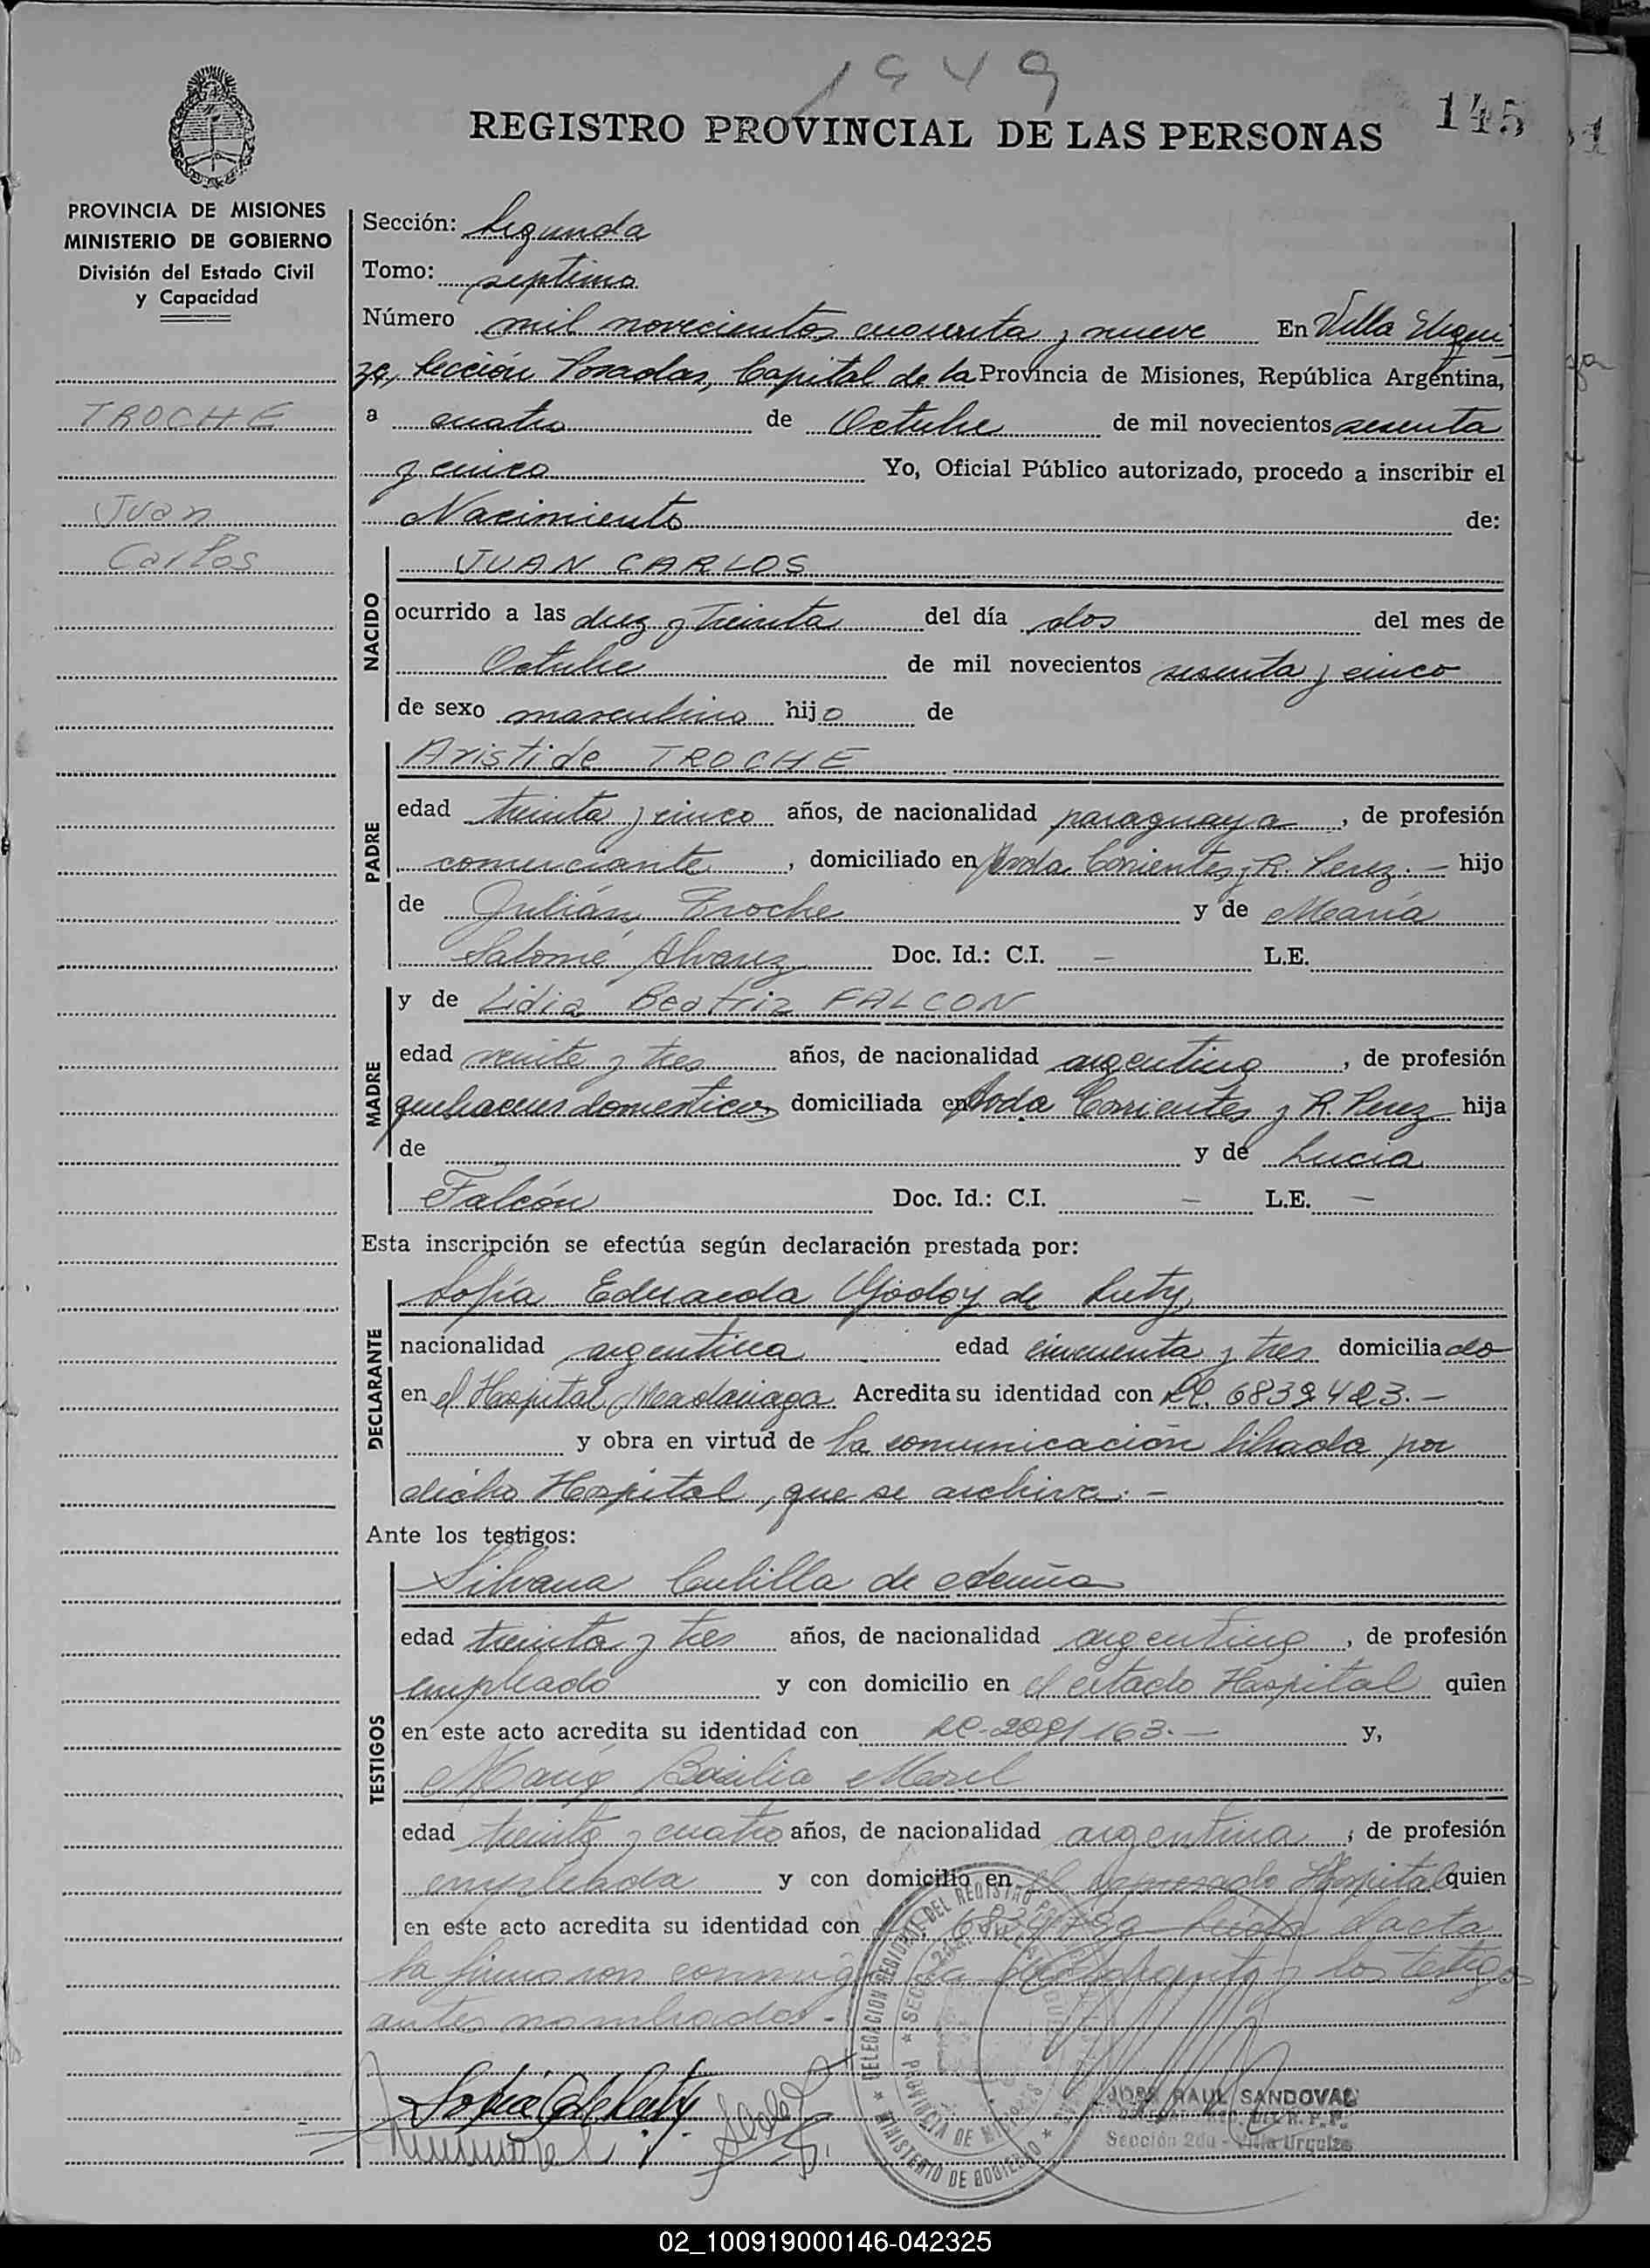 1949
REGISTRO PROVINCIAL DE LAS PERSONAS
145
PROVINCIA DE MISIONES
MINISTERIO DE GOBIERNO
División del Estado Civil
y Capacidad
TROCHE
Juan
Carlos
Sección: Segunda
Tomo: septimo
Número mil novecientos cuarenta y nueve En Villa Urqui
za, Sección Posadas, Capital de la Provincia de Misiones, República Argentina,
a cuatro de Octubre de mil novecientos sesenta
y cinco Yo, Oficial Público autorizado, procedo a inscribir el
Nacimiento de:
NACIDO
JUAN CARLOS
ocurrido a las diez y treinta del día dos del mes de
Octubre de mil novecientos sesenta y cinco
de sexo masculino hijo de
PADRE
Aristide TROCHE
edad treinta y cinco años, de nacionalidad paraguaya, de profesión
comerciante, domiciliado en Avda Corrientes y R. Perez. - hijo
de Julián Troche y de María
Salomé Alvarez Doc. Id.: C.I. - L.E.
MADRE
y de Lidia Beatriz FALCON
edad veinte y tres años, de nacionalidad argentina, de profesión
quehaceres domesticos domiciliada en Avda Corrientes y R. Perez hija
de y de Lucia
Falcón Doc. Id.: C.I. - L.E. -
Esta inscripción se efectúa según declaración prestada por:
DECLARANTE
Sofía Eduarda Godoy de Luty
nacionalidad argentina edad cincuenta y tres domiciliado
en el Hospital Madariaga Acredita su identidad con LC.
y obra en virtud de la comunicación librada por
dicho Hospital, que se archiva. -
Ante los testigos:
TESTIGOS
Silvana de
edad treinta y tres años, de nacionalidad argentina, de profesión
empleado y con domicilio en el citado Hospital quien
en este acto acredita su identidad con LC- y,
María Basilia Morel
edad treinta y cuatro años, de nacionalidad argentina, de profesión
empleada y con domicilio en el expresado Hospital quien
en este acto acredita su identidad con Leida el acta
la firmaron conmigo la declarante y los testigos
antes nombrados. -
DELEGACION REGIONAL DEL REGISTRO
MINISTERIO DE GOBIERNO
PROVINCIA DE MISIONES
JOSE RAUL SANDOVAL
Sección 2da - Villa Urquiza
02_100919000146-042325